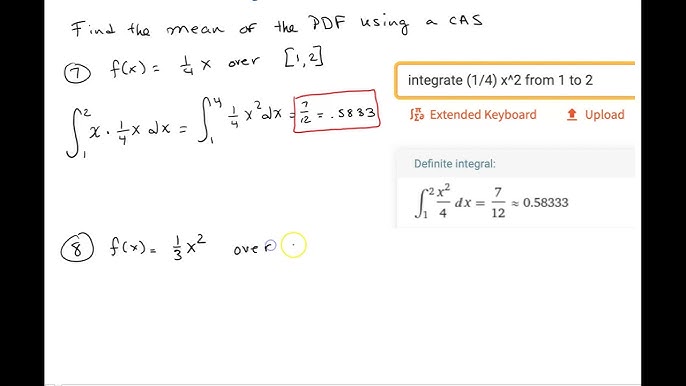 Find the mean of the PDF using a CAS
⑦ f(x) = 1/4 x over [1,2]
∫₁² x · 1/4 x dx = ∫₁⁴ 1/4 x² dx = 7/12 = .5833
integrate (1/4) x^2 from 1 to 2
Extended Keyboard Upload
Definite integral:
∫₁² x²/4 dx = 7/12 ≈ 0.58333
⑧ f(x) = 1/3 x² over